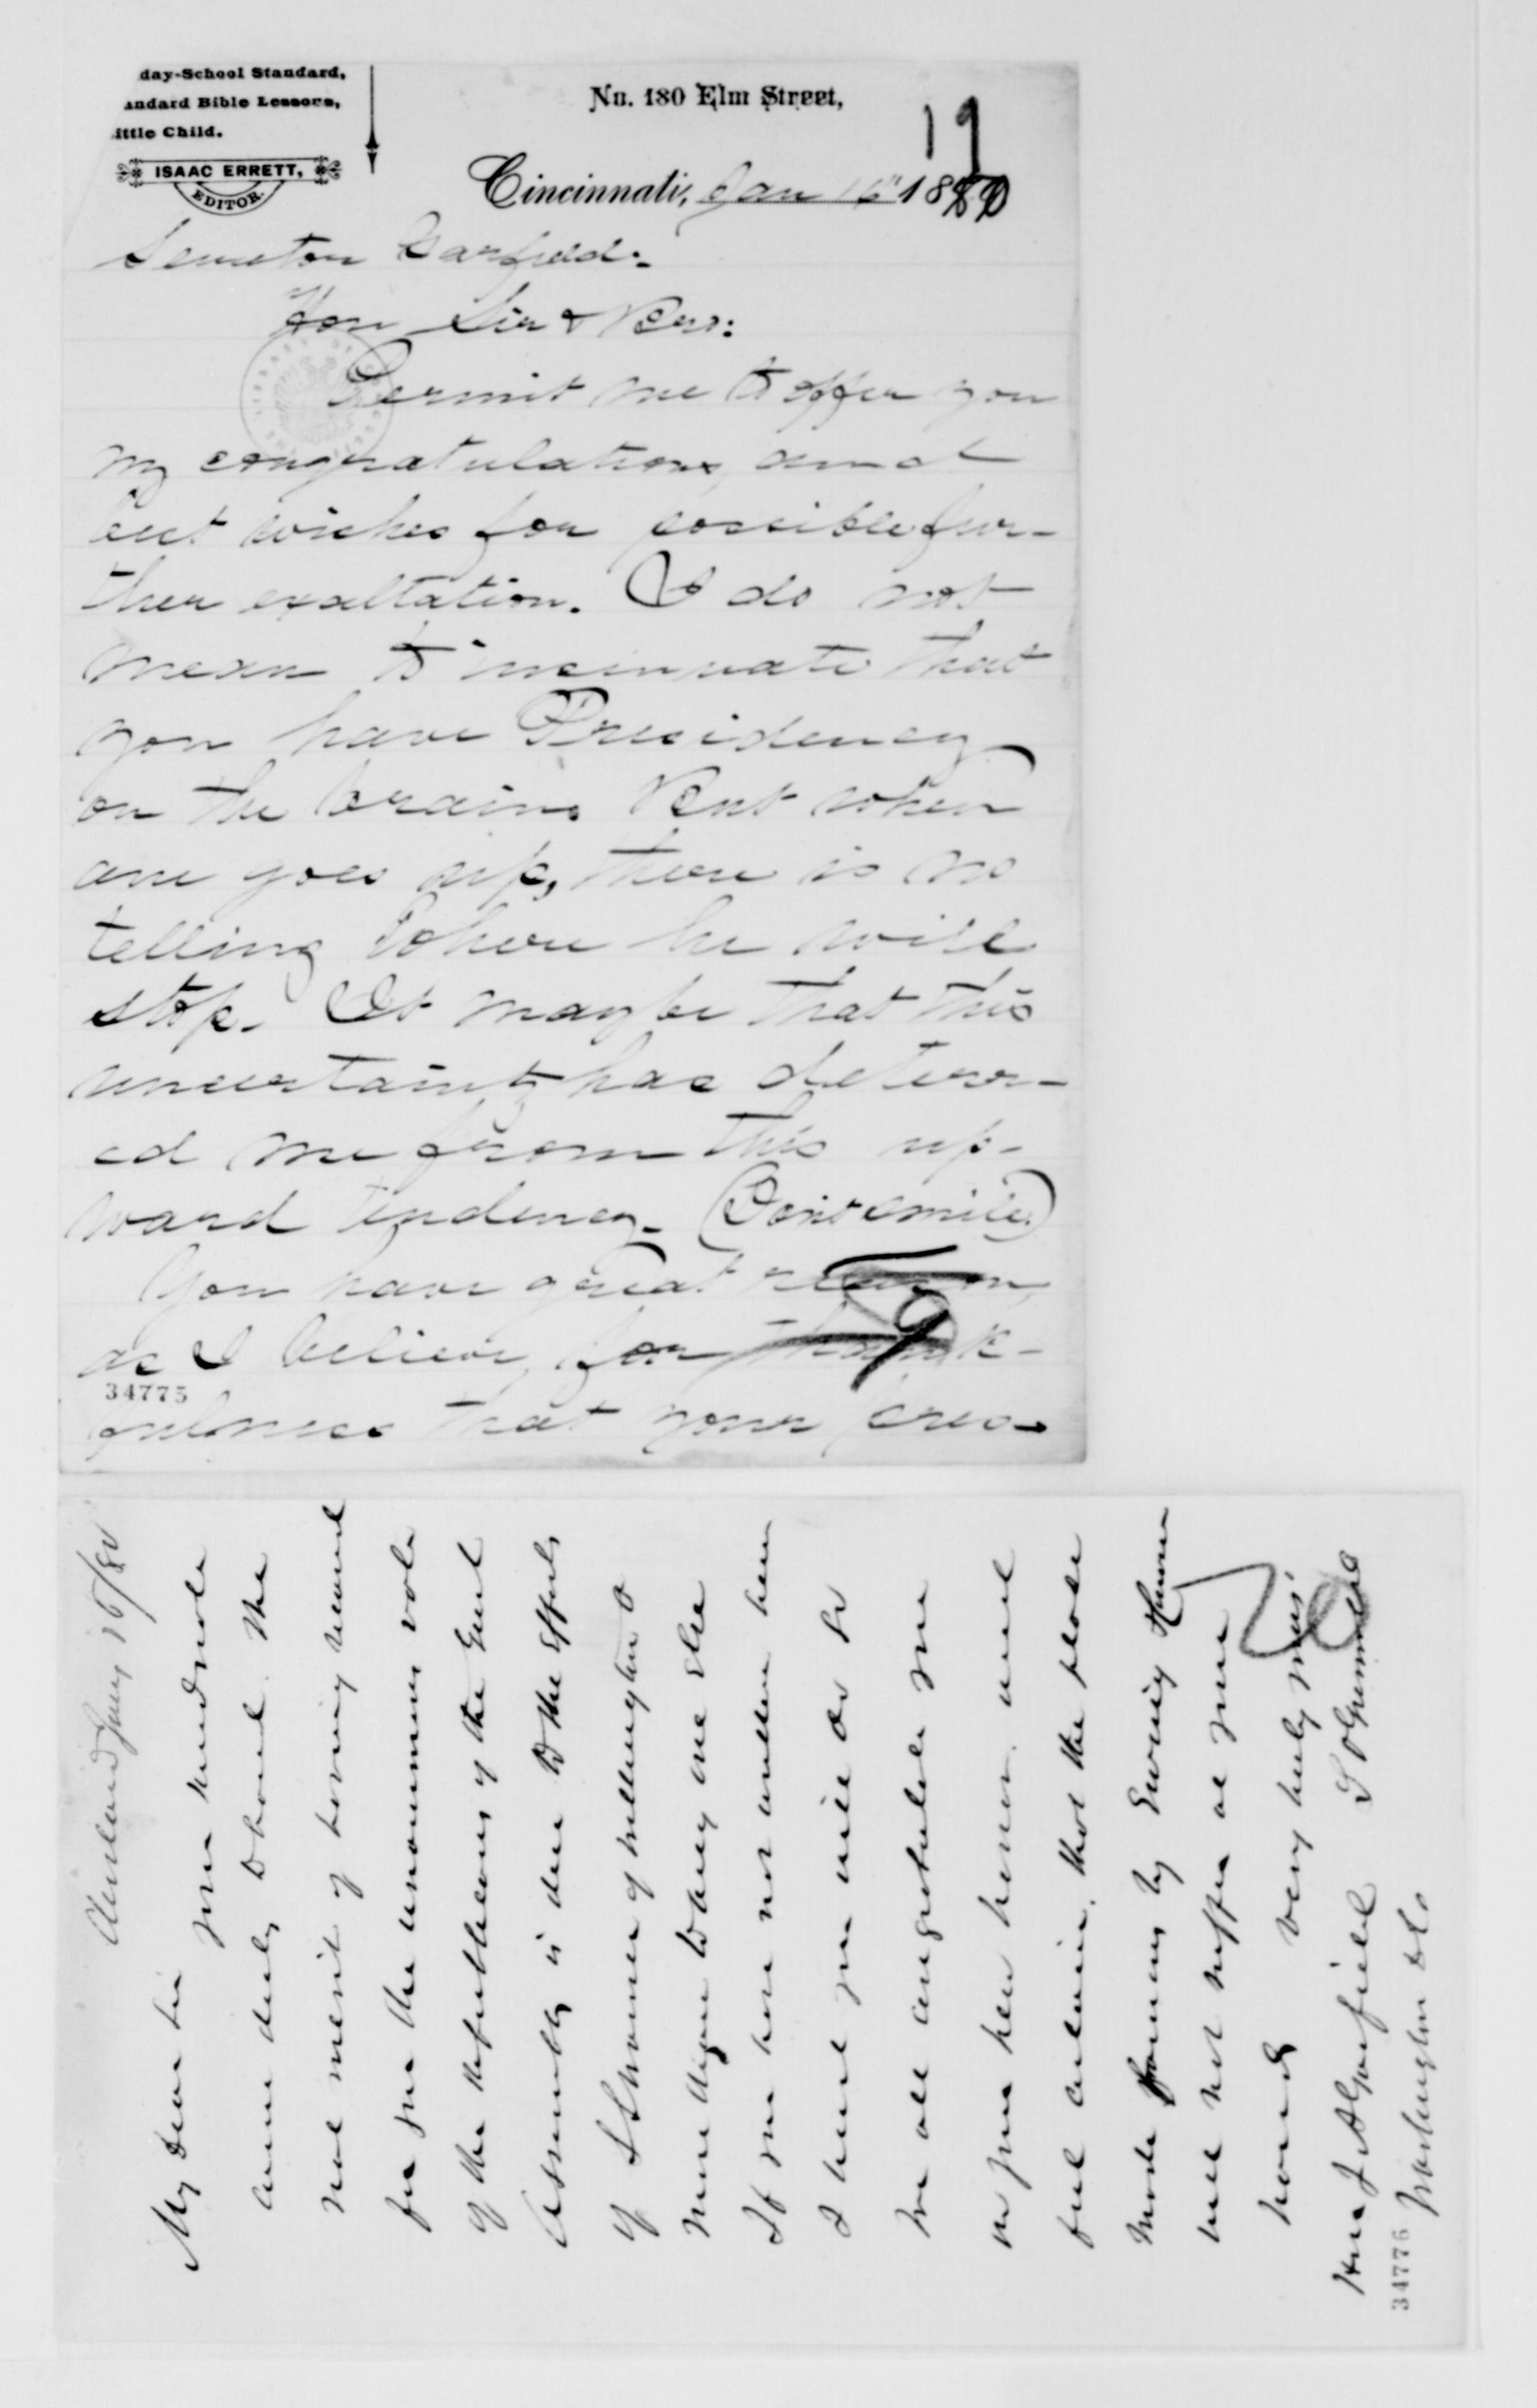 day-School Standard,
andard Bible Lessons,
ittle Child.
ISAAC ERRETT,
EDITOR.
No. 180 Elm Street,
19
Cincinnati, Jan 16" 1880
Senator Garfield:
Hon Sir & Bro:
Permit me to offer you
my congratulations, and
best wishes for possible fur-
ther exaltation. I do not
mean to insinuate that
you have Presidency
on the brain. But when
one goes up, there is no
telling where he will
stop. It may be that this
uncertainty has deterr-
ed me from this up-
ward tendency. (Dont smile)
You have great reason,
as I believe, for thank-
fulness that your pres-
34775
Cleveland Jany 16/80
My Dear Sir
Your kind note
came duly to hand. The
merit of having secured
for you the unanimous vote
of the republicans of the Genl
Assembly is due to the Efforts
of
more than to any one else
If you have not written him
I hope you will do so
We all congratulate you
on your new honor, and
feel certain, that the place
made famous by Ewing
will not suffer at your
hands
very truly yours
Hon J A Garfield
Washington DC
34776